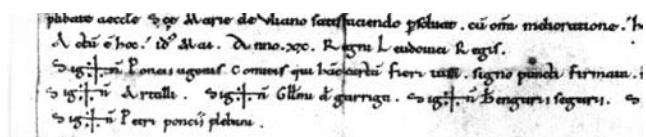 plibato aeccle Sce Marie de Vivano satisfaciendo psolvat . cu omi melioratione .
Actu e hoc . id' Mai . Anno . xxx . Regni Leudovici Regis .
Sig:+:n Poncii ugonis . Comitis qui hac carta fieri iussi . signo puncti firmavi .
Sig:+:n Artalli . Sig:+:n Gllmi d garriga . Sig:+:n Bengarii segarii . S
Sig:+:n Petri poncii plebani .